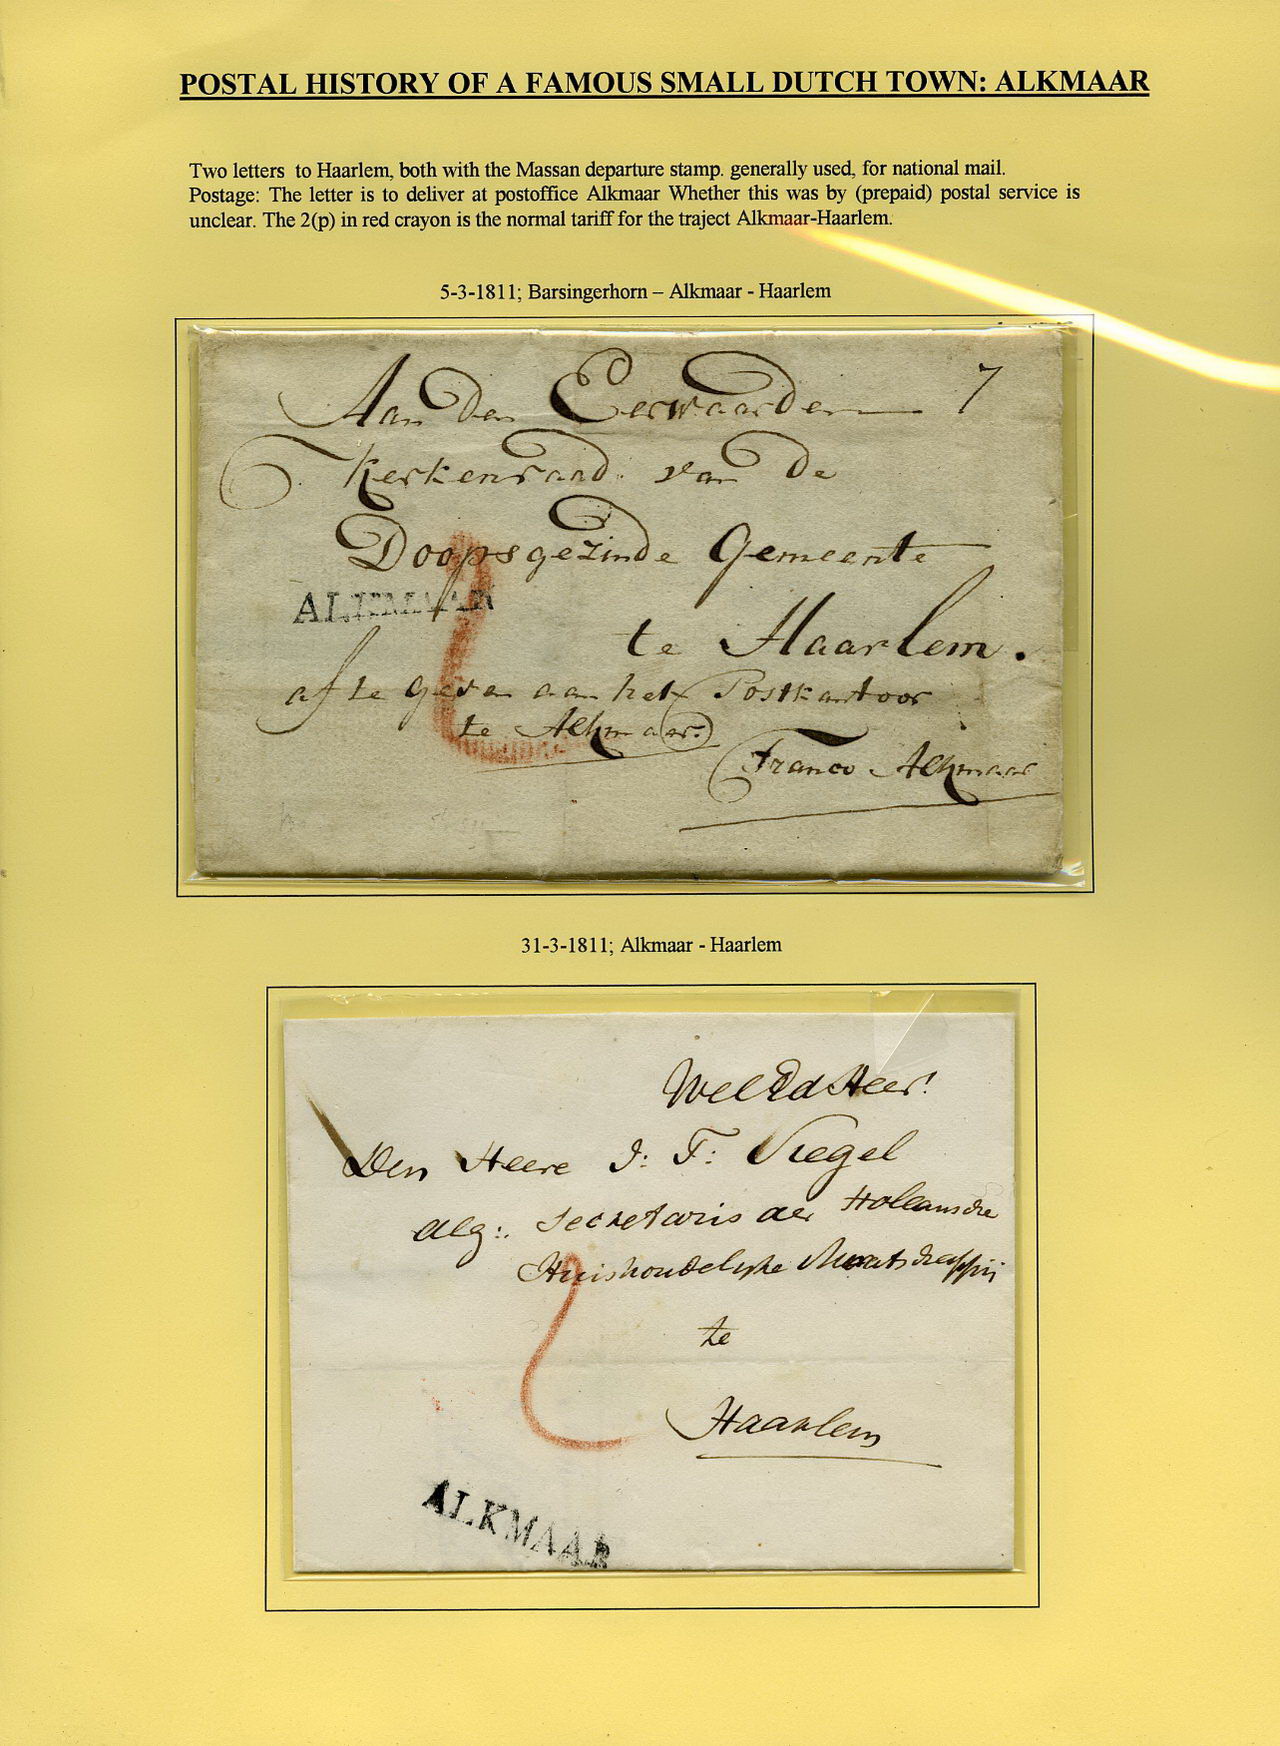 POSTAL HISTORY OF A FAMOUS SMALL DUTCH TOWN: ALKMAAR
Two letters to Haarlem, both with the Massan departure stamp. generally used, for national mail.
Postage: The letter is to deliver at postoffice Alkmaar Whether this was by (prepaid) postal service is
unclear. The 2(p) in red crayon is the normal tariff for the traject Alkmaar-Haarlem.
5-3-1811; Barsingerhorn – Alkmaar - Haarlem
Aan den Eerwaarden 7
Kerkenraad van de
Doopsgezinde Gemeente
ALKMAAR
te Haarlem.
af te geven aan het Postkantoor
te Alkmaar
Franco Alkmaar
2
31-3-1811; Alkmaar - Haarlem
WelEdHeer!
Den Heere J: F: Siegel
alg: Secretaris der Hollansche
Huishoudelyke Maatschappij
2
te
Haarlem
ALKMAAR